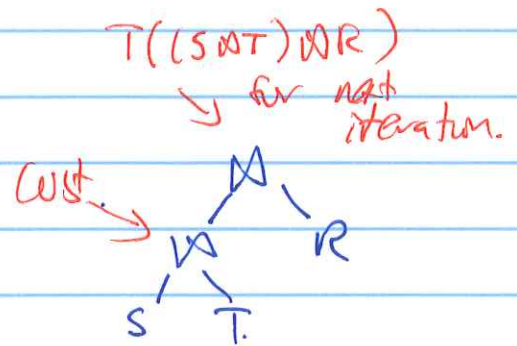 T((S⋈T)⋈R)
for next
iteration.
⋈
Cost.
⋈ R
S T.